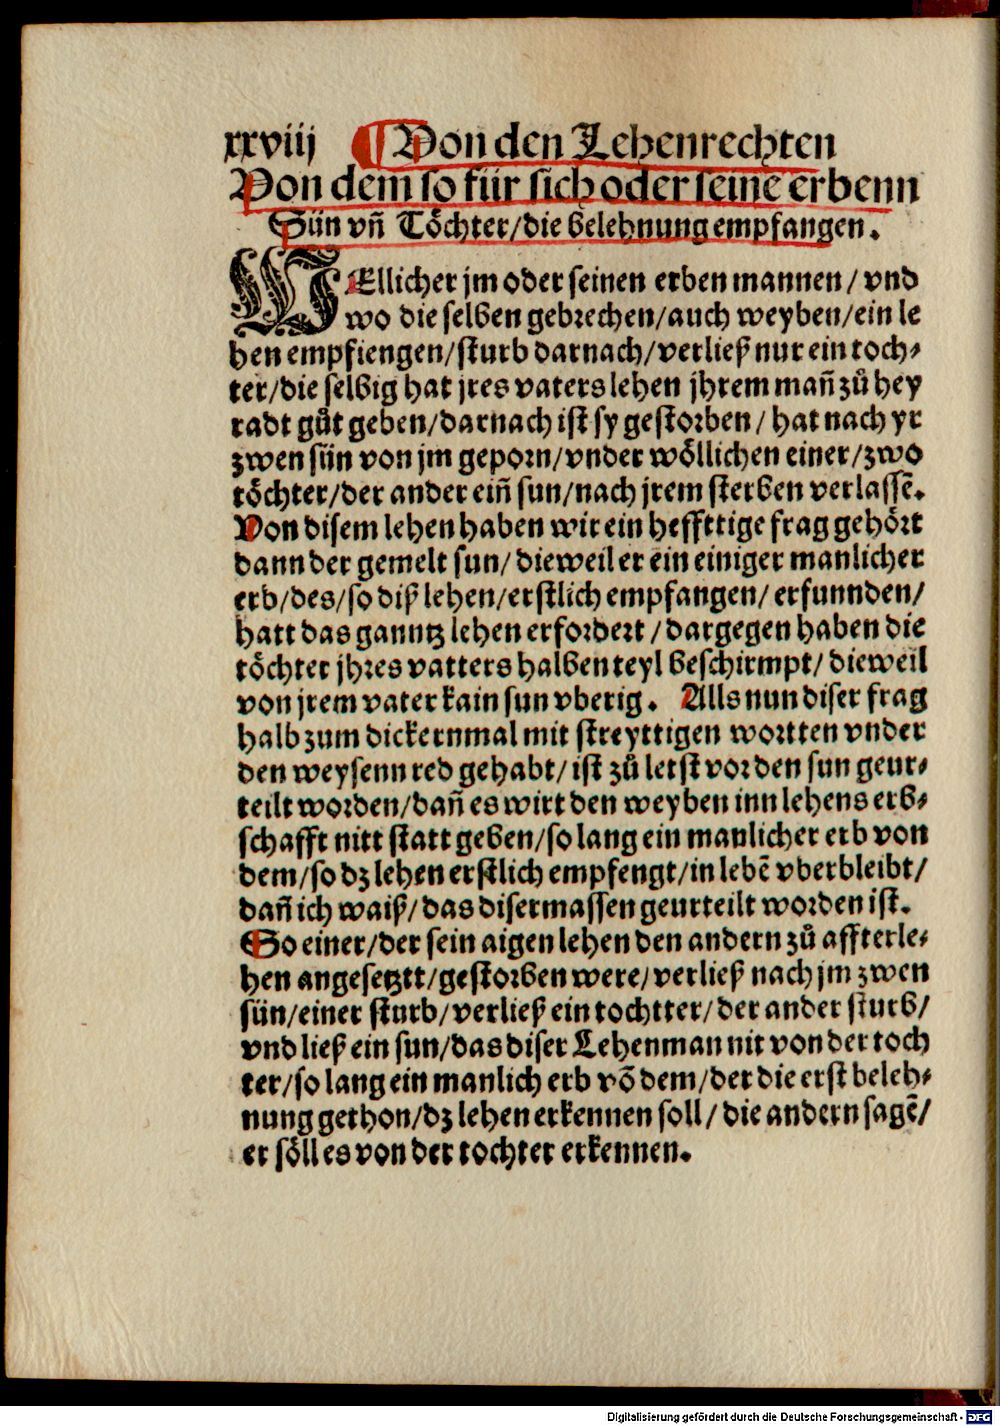 xxviij ¶ Von den Lehenrechten
Von dem so für sich oder seine erbenn
Sün vñ Töchter/die belehnung empfangen.
WEllicher jm oder seinen erben mannen/ vnd
wo die selben gebrechen/auch weyben/ein le
hen empfiengen/sturb darnach/verließ nur ein toch⸗
ter/die selbig hat jres vaters lehen jhrem mañ zů hey
radt gůt geben/darnach ist sy gestorben/ hat nach yr
zwen sün von jm geporn/vnder wöllichen einer/zwo
töchter/der ander eiñ sun/nach jrem sterben verlassē.
Von disem lehen haben wir ein heffttige frag gehört
dann der gemelt sun/ dieweil er ein einiger manlicher
erb/des/so diß lehen/erstlich empfangen/ erfunnden/
hatt das ganntz lehen erfordert/dargegen haben die
töchter jhres vatters halben teyl beschirmpt/ dieweil
von jrem vater kain sun vberig. Alls nun diser frag
halb zum dickernmal mit streyttigen wortten vnder
den weysenn red gehabt/ ist zů letst vor den sun geur⸗
teilt worden/dañ es wirt den weyben inn lehens erb⸗
schafft nitt statt geben/so lang ein manlicher erb von
dem/so dz lehen erstlich empfengt/in lebē vberbleibt/
dañ ich waiß/das disermassen geurteilt worden ist.
So einer/der sein aigen lehen den andern zů affterle⸗
hen angesetztt/gestorben were/verließ nach jm zwen
sün/einer sturb/verließ ein tochtter/der ander sturb/
vnd ließ ein sun/das diser Lehenman nit von der toch
ter/so lang ein manlich erb võ dem/der die erst beleh⸗
nung gethon/dz lehen erkennen soll/ die andern sagē/
er sölles von der tochter erkennen.
Digitalisierung gefördert durch die Deutsche Forschungsgemeinschaft - DFG